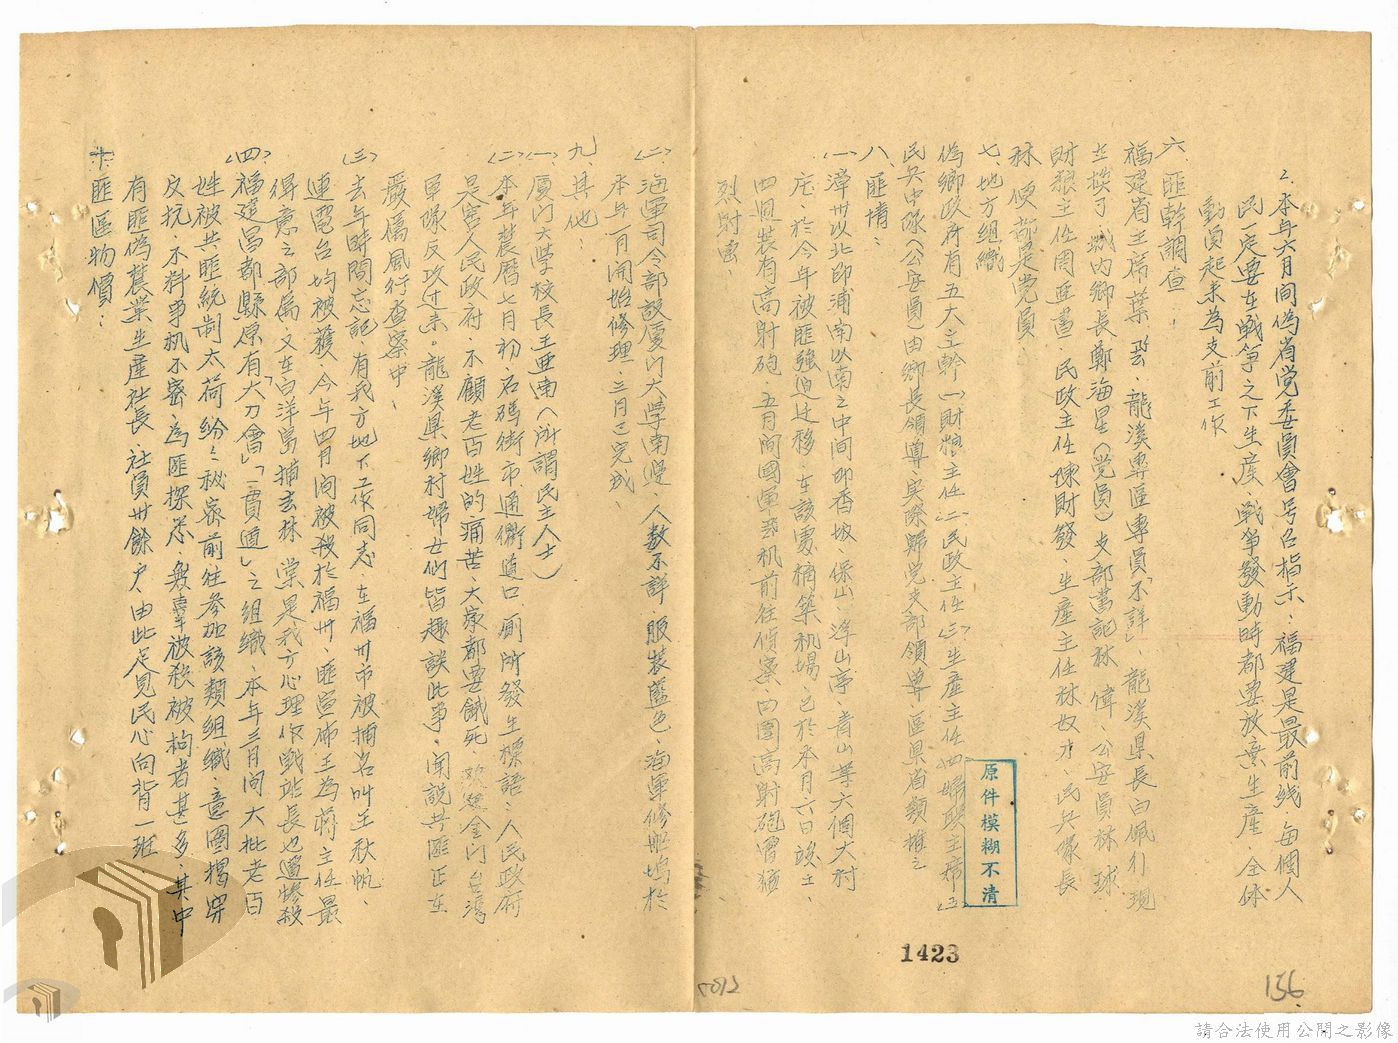 2. 本年六月间偽省党委員會号召指示：福建是最前线，每個人
民一定要在戰爭之下生産，戰爭發動時都要放棄生産，全体
動員起来為支前工作
六、匪幹調查：
福建省主席葉飛、龍溪專區專員「不詳」、龍溪県長白佩行現
城内鄉長鄭海星(党員)支部書記林偉、公安員林球
財粮主任周匪晝、民政主任陳財發、生産主任林奴才、民兵隊長
林便都是党員
七、地方組織
偽鄉政府有五大主幹(一)財粮主任(二)民政主任(三)生産主任(四)婦联主席(五)
民兵中隊(公安員)由鄉長領導，实際歸党支部領導，區県省類推之
八、匪情：
(一)漳卅以北即浦南以南之中间即香坡、保山、漳山亭、青山等六個大村
庄、於今年被匪強迫迁移，在該處構築机場，已於本月六日竣工，
四週裝有高射砲，五月间國軍飛机前往偵察，四圍高射砲曾猛
烈射击，
(二)海軍司令部設厦门大学南邊，人数不詳，服裝藍色，海軍修船塢於
本年一月開始修理，三月已完成，
九、其他：
(一)厦门大学校長王亜南(所謂民主人士)
(二)本年農曆七月初，石碼街市通衢道口，廁所發生標語：人民政府
是害人民政府，不顧老百姓的痛苦，大家都要餓死，欢迎金门台湾
軍隊反攻过来。龍溪県鄉村婦女们皆趣談此事，聞說共匪正在
嚴厲風行查察中，
(三)去年時間忘記，有我方地下工作同志，在福卅市被捕名叫王秋帆，
連電台均被獲，今年四月间被殺於福卅，匪宣佈王為蒋主任最
得意之部属，又在白洋島捕去林棠是我方心理作戰站長也遭惨殺
(四)福建昌鄰縣原有「大刀會」「一貫道」之組織，本年三月间大批老百
姓被共匪統制太苛紛紛秘密前往參加該類組織，意圖揭竿
反抗，不料事机不密，為匪探悉，殺辜被殺被拘者甚多，其中
有匪偽農業生産社長，社員卅餘户由此足見民心向背一班
十、匪區物價：
原件模糊不清
1423
156
請合法使用公開之影像